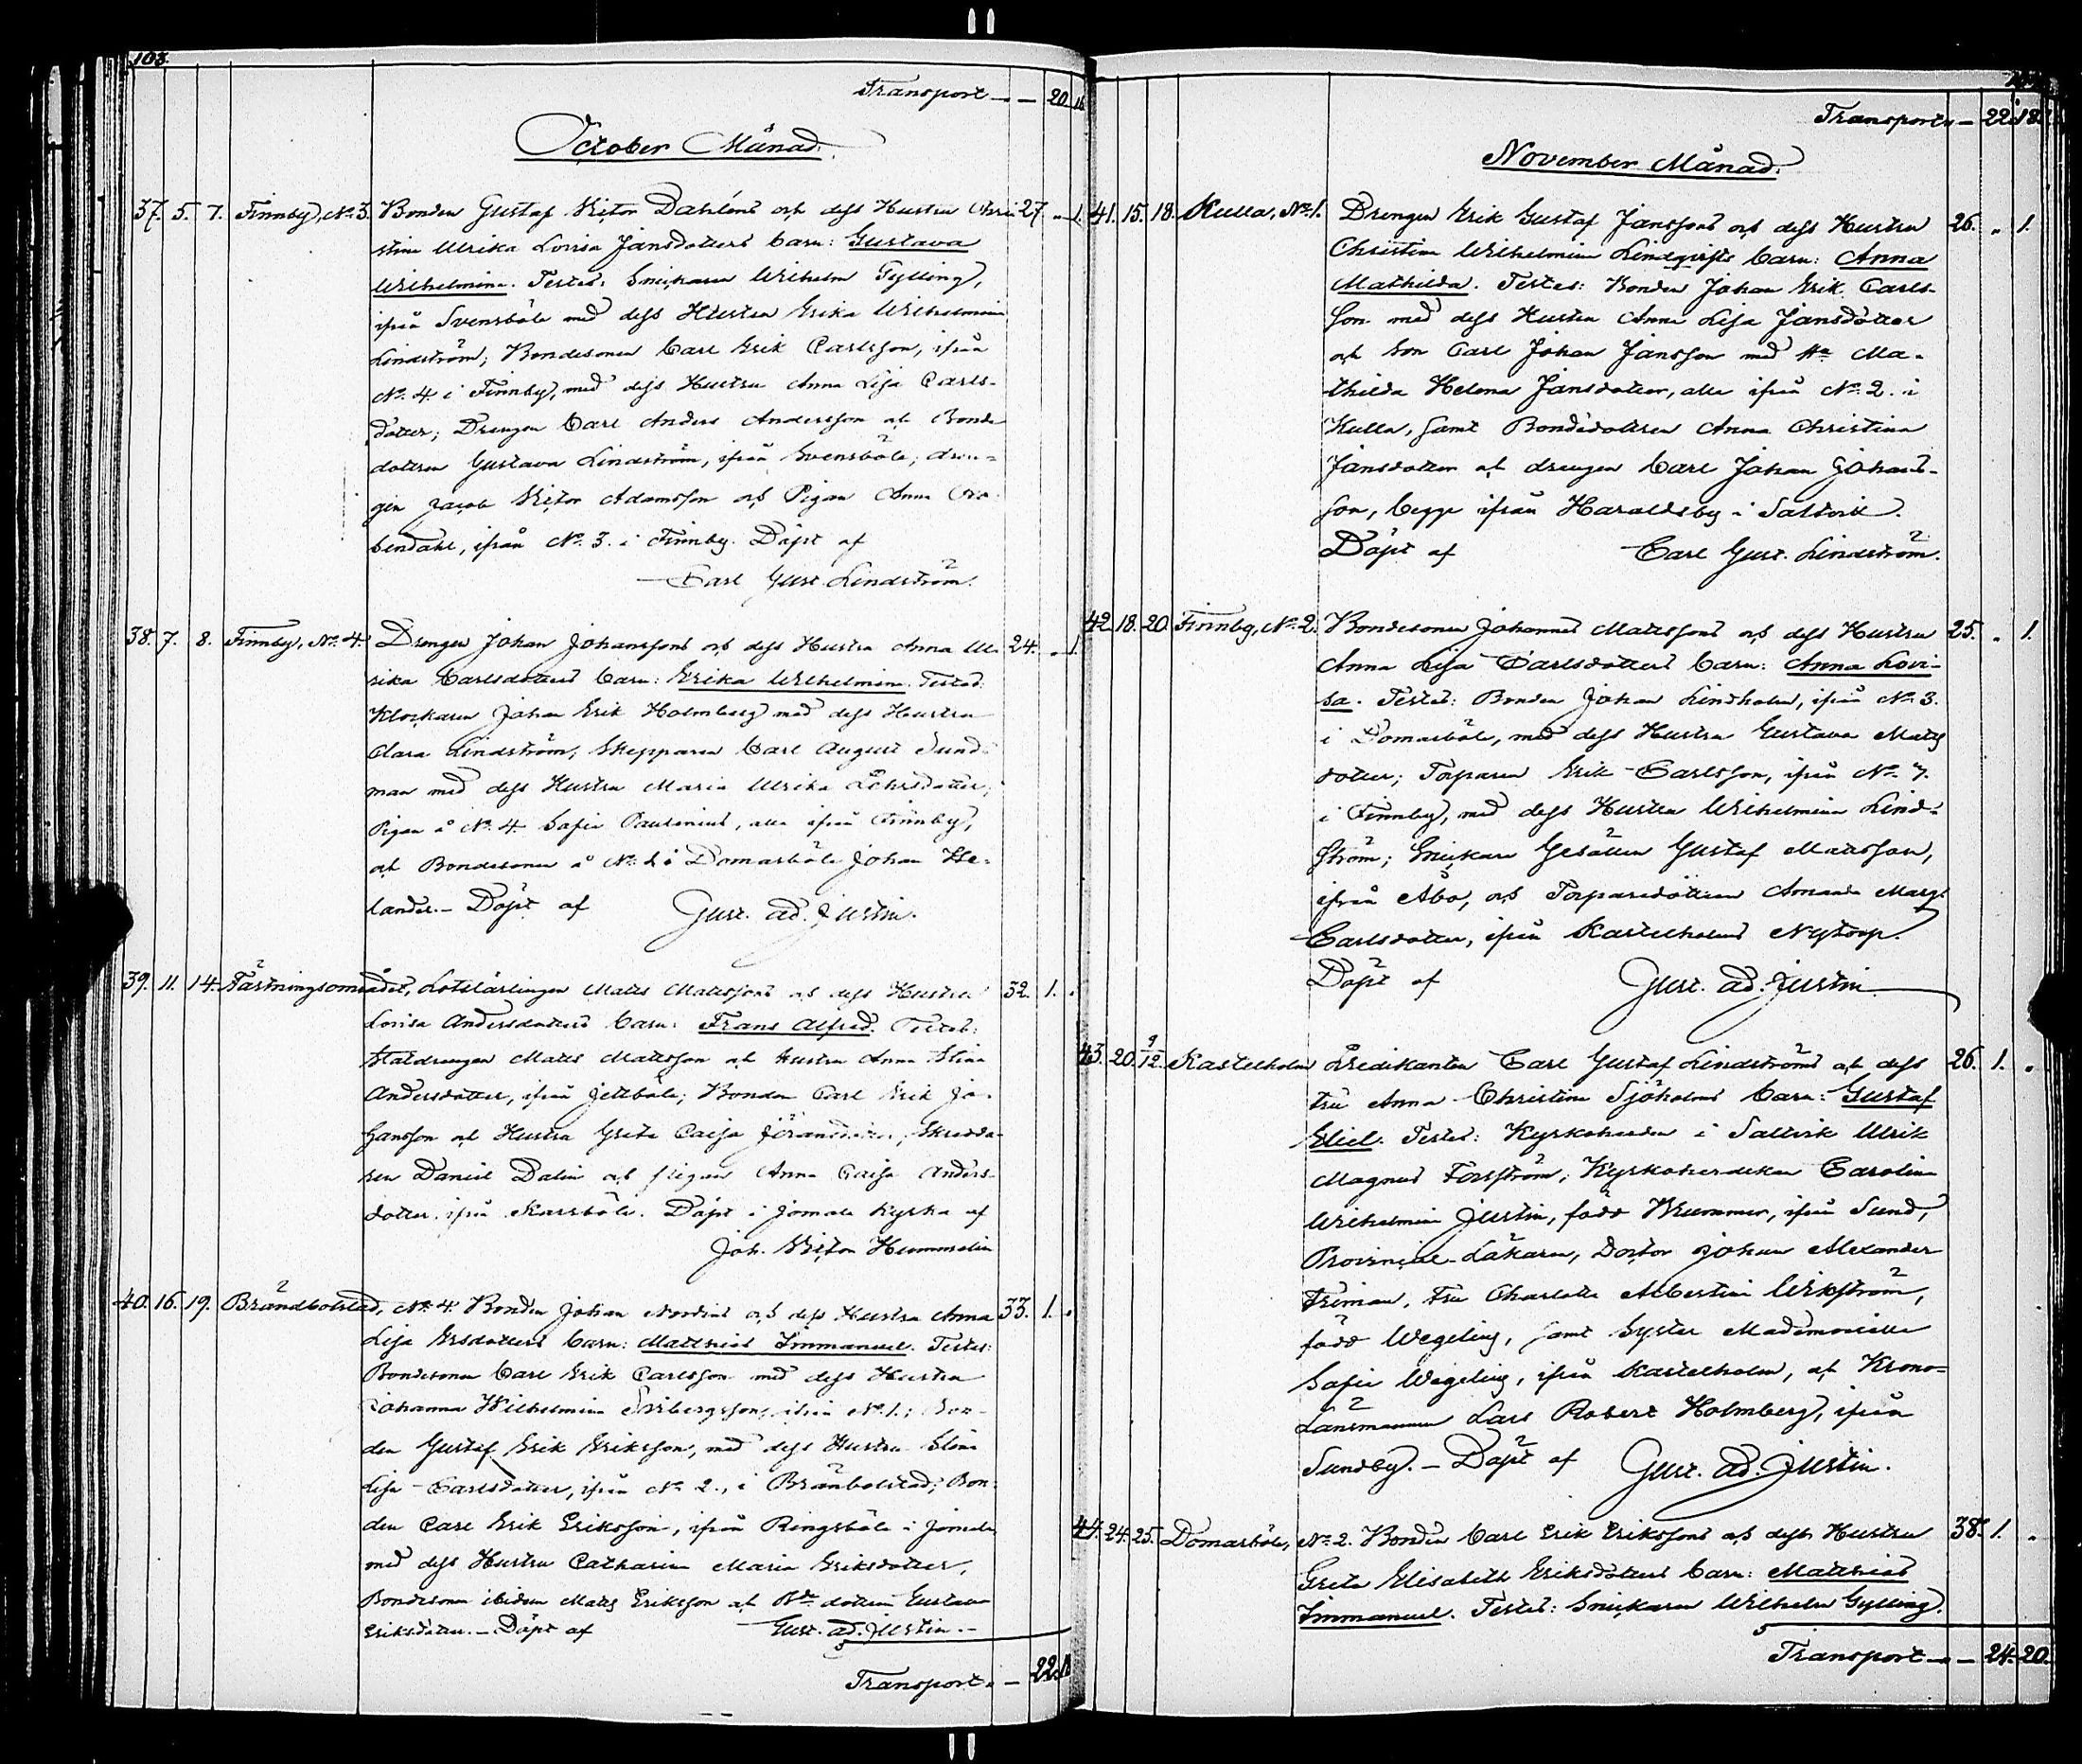 108.
Transport — 20. 18
October Månad.
37. 5. 7. Finnby, No. 3. Bonden Gustaf Victor Dahléns och dess Hustru Chri- 27. „ 1.
stina Ulrika Lovisa Jansdotters barn: Gustava
Wilhelmina. Testes: Snickaren Wilhelm Gylling,
ifrån Svensböle med dess Hustru Erika Wilhelmina
Lindström; Bondesonen Carl Erik Carlsson, ifrån
No. 4 i Finnby, med dess Hustru Anna Lisa Carls-
dotter; Drengen Carl Anders Andersson och Bonde
dottren Gustava Lindström, ifrån Svensböle; dren-
gen Jacob Victor Adamsson och Pigan Anna
bendahl, ifrån No. 3. i Finnby. Döpt af
Carl Gust. Lindström.
38. 7. 8. Finnby, No. 4. Drengen Johan Johanssons och dess Hustru Anna Ul- 24. „ 1.
rika Carlsdotters barn: Erika Wilhelmina. Testes:
Klockaren Johan Erik Holmberg med dess Hustru
Clara Lindström, Skepparen Carl August Sund-
man med dess Hustru Maria Ulrika
Pigan å No. 4. Sofia Paulinius, alla ifrån Finnby,
och Bondesonen å No. 1 i Domarböle Johan He-
lander. – Döpt af Gust. Ad. Justin.
39. 11. 14. Fästningsområdet, Lotslärlingen Mats Matssons och dess Hustru 32. 1. „
Lovisa Andersdotters barn: Frans Alfred. Testes:
Staldrengen Mats Matsson och Hustru Anna Stina
Andersdotter, ifrån Jettböle; Bonden Carl Erik Jo-
hansson och Hustru Greta Caisa Skredda-
ren Daniel Dalin och pigan Anna Caisa Anders-
dotter ifrån Karrböle. Döpt i Jomala Kyrka af
Joh. Victor Hummelin
40. 16. 19. Brändbolstad, No. 4. Bonden Johan Nordins och dess Hustru Anna 33. 1. „
Lisa Ersdotters barn: Matthias Immanuel. Testes:
Bondesonen Carl Erik Carlsson med dess Hustru
Johanna Wilhelmina ifrån No. 1.; Bon-
den Gustaf Erik Eriksson, med dess Hustru Stina
Lisa Carlsdotter, ifrån No. 2., i Bränbolstad; Bon-
den Carl Erik Eriksson, ifrån Ringsböle i Jomala
med dess Hustru Catharina Maria Eriksdotter,
Bondesonen ibidem Mats Eriksson och Bde dottren Gustava
Eriksdotter. – Döpt af Gust. Ad. Justin. –
Transport. — 22. 18
Transport — 22. 18.
November Månad.
41. 15. 18. Kulla, No. 1. Drengen Erik Gustaf Janssons och dess Hustru 26. „ 1.
Christina Wilhelmina Lindqvists barn: Anna
Mathilda. Testes: Bonden Johan Erik Carls-
son med dess Hustru Anna Lisa Jansdotter
och Son Carl Johan Jansson med Hu Ma-
thilda Helena Jansdotter, alla ifrån No. 2. i
Kulla, samt Bondedottren Anna Christina
Jansdotter och drengen Carl Johan Johans-
son, begge ifrån Haraldsby i Saltvik.
Döpt af Carl Gust. Lindström.
42. 18. 20. Finnby, No. 2. Bondesonen Johannes Matssons och dess Hustru 25. „ 1.
Anna Lisa Carlsdotters barn: Anna Lovi-
sa. Testes: Bonden Johan Lindholm, ifrån No. 3.
i Domarböle, med dess Hustru Gustava Mats
dotter; Torparen Erik Carlsson, ifrån No. 7.
i Finnby, med dess Hustru Wilhelmina Lind-
ström; Snickare Gesällen Gustaf Matsson,
ifrån Åbo, och Torparedottren Amanda Marg.
Carlsdotter, ifrån Kastelholms Nytorp.
Döpt af Gust. Ad. Justin
43. 20. 9/12. Kastelholm Predikanten Carl Gustaf Lindströms och dess 26. 1. „
Fru Anna Christina Sjöholms barn: Gustaf
Eliel. Testes: Kyrkoherden i Saltvik Ulrik
Magnus Forsström; Kyrkoherdskan Carolina
Wilhelmina Justin, född Brummer, ifrån Sund,
Provincial-Läkaren, Doctor Johan Alexander
Friman, Fru Charlotta Albertina Wikström,
född Wegeling, samt Syster Mademoiselle
Sofia Wegeling, ifrån Kastelholm, och Krono-
Länsmannen Lars Robert Holmberg, ifrån
Sundby. – Döpt af Gust. Ad. Justin.
44. 24. 25. Domarböle, No. 2. Bonden Carl Erik Erikssons och dess Hustru 38. 1. „
Greta Elisabeth Eriksdotters barn: Matthias
Immanuel. Testes: Snickaren Wilhelm Gylling.
Transport — 24. 20.